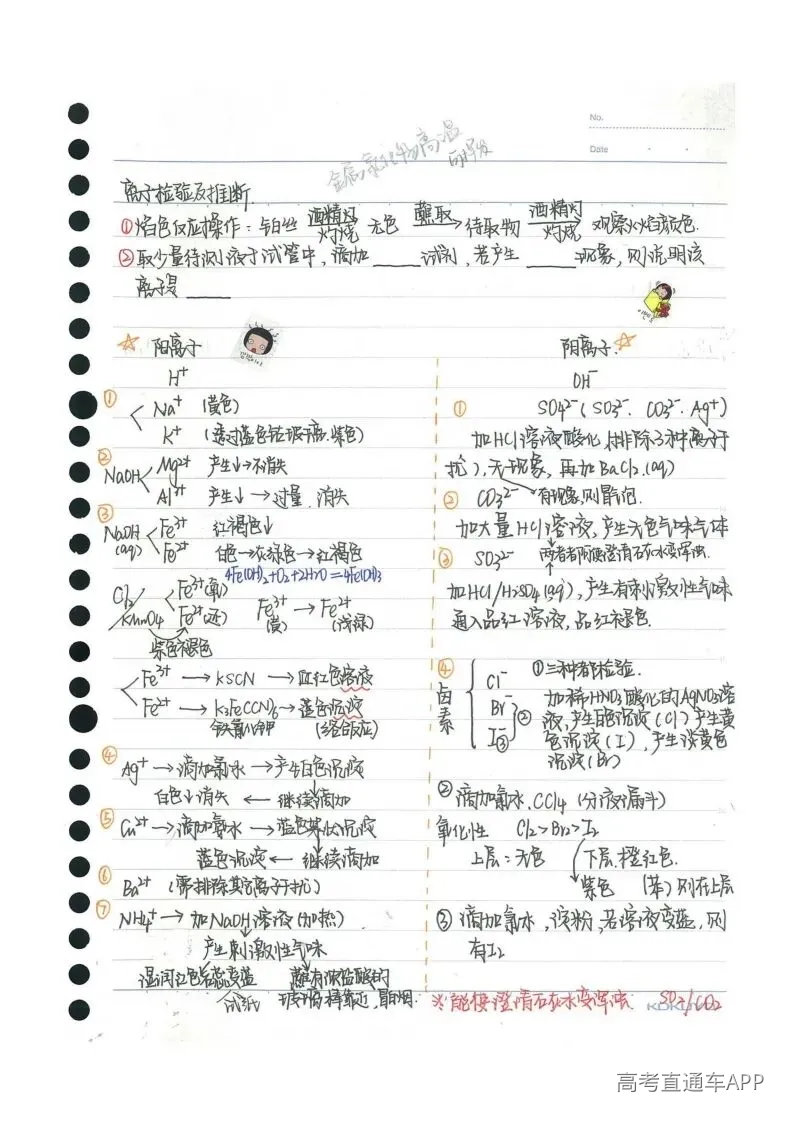 No.
Date
金属氯化物高温
离子检验及推断.
①焰色反应操作：铂丝 酒精灯 灼烧 无色 蘸取 待取物 酒精灯 灼烧 观察火焰颜色.
②取少量待测液于试管中，滴加____试剂，若产生____现象，则说明该
离子是____
☆ 阳离子
H⁺
① Na⁺ (黄色)
K⁺ (透过蓝色钴玻璃，紫色)
② NaOH Mg²⁺ 产生↓→不消失
Al³⁺ 产生↓→过量，消失
③ NaOH (aq) Fe³⁺ 红褐色↓
Fe²⁺ 白色→灰绿色→红褐色
4Fe(OH)₂+O₂+2H₂O=4Fe(OH)₃
Cl₂/KMnO₄ Fe³⁺(氧) Fe²⁺(还)
Fe³⁺(黄)→Fe²⁺(浅绿)
紫色褪色
Fe³⁺→KSCN→血红色溶液
Fe²⁺→K₃Fe(CN)₆→蓝色沉淀
铁氰化钾 (络合反应)
④ Ag⁺→滴加氨水→产生白色沉淀
白色↓消失←继续滴加
⑤ Cu²⁺→滴加氨水→蓝色絮状沉淀
蓝色沉淀←继续滴加
⑥ Ba²⁺ (需排除其它离子干扰)
⑦ NH₄⁺→加NaOH溶液(加热)
产生刺激性气味
湿润红色石蕊变蓝
试纸
蘸有浓盐酸的
玻璃棒靠近，冒白烟.
阴离子.☆
OH⁻
① SO₄²⁻(SO₃²⁻、CO₃²⁻、Ag⁺)
加HCl溶液酸化，(排除3种离子干
扰)，无现象，再加BaCl₂(aq)
② CO₃²⁻ 有现象，则
加大量HCl溶液，产生无色气味气体
两者都可使澄清石灰水变浑浊.
③ SO₃²⁻
加HCl/H₂SO₄(aq)，产生有刺激性气味
通入品红溶液，品红褪色.
④ 卤素 Cl⁻ Br⁻ I⁻ ② ③
①三种都检验.
加稀HNO₃酸化的AgNO₃溶
液，产生白沉淀(Cl)产生黄
色沉淀(I)，产生淡黄色
沉淀(Br)
②滴加氯水、CCl₄(分液漏斗)
氧化性 Cl₂>Br₂>I₂
上层：无色 下层，橙红色.
紫色 (苯)则在上层
③滴加氯水，淀粉，若溶液变蓝，则
有I₂
※能使澄清石灰水变浑浊 SO₂/CO₂
KOKUYO
高考直通车APP